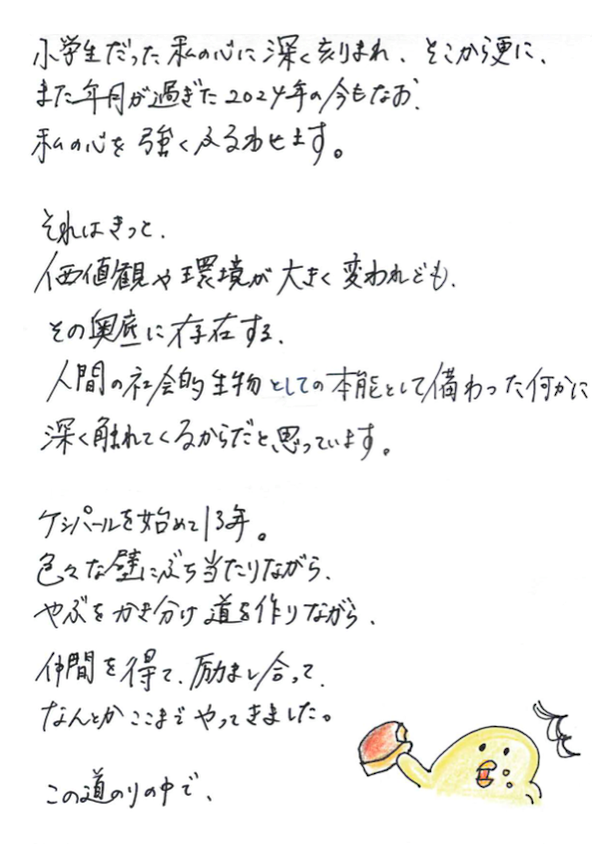 小学生だった私の心に深く刻まれ、そこから更に、
また年月が過ぎた2024年の今もなお、
私の心を強くふるわせます。
それはきっと、
価値観や環境が大きく変われども、
その奥底に存在する、
人間の社会的生物としての本能として備わった何かに
深く触れてくるからだと思っています。
ケシパールを始めて13年。
色々な壁にぶち当たりながら、
やぶをかき分け道を作りながら、
仲間を得て、励まし合って、
なんとかここまでやってきました。
この道のりの中で、